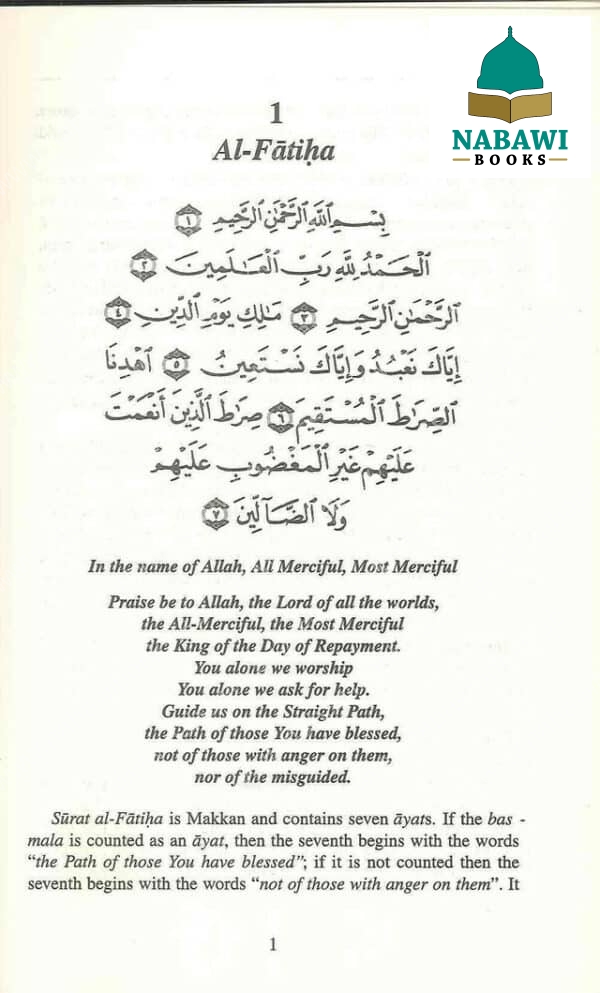 NABAWI
BOOKS
1
Al-Fātiḥa
بِسْمِ اللَّهِ الرَّحْمَٰنِ الرَّحِيمِ ١
الْحَمْدُ لِلَّهِ رَبِّ الْعَالَمِينَ ٢
الرَّحْمَٰنِ الرَّحِيمِ ٣ مَالِكِ يَوْمِ الدِّينِ ٤
إِيَّاكَ نَعْبُدُ وَإِيَّاكَ نَسْتَعِينُ ٥ اهْدِنَا
الصِّرَاطَ الْمُسْتَقِيمَ ٦ صِرَاطَ الَّذِينَ أَنْعَمْتَ
عَلَيْهِمْ غَيْرِ الْمَغْضُوبِ عَلَيْهِمْ
وَلَا الضَّآلِّينَ ٧
In the name of Allah, All Merciful, Most Merciful
Praise be to Allah, the Lord of all the worlds,
the All-Merciful, the Most Merciful
the King of the Day of Repayment.
You alone we worship
You alone we ask for help.
Guide us on the Straight Path,
the Path of those You have blessed,
not of those with anger on them,
nor of the misguided.
Sūrat al-Fātiḥa is Makkan and contains seven āyats. If the bas -
mala is counted as an āyat, then the seventh begins with the words
“the Path of those You have blessed”; if it is not counted then the
seventh begins with the words “not of those with anger on them”. It
1